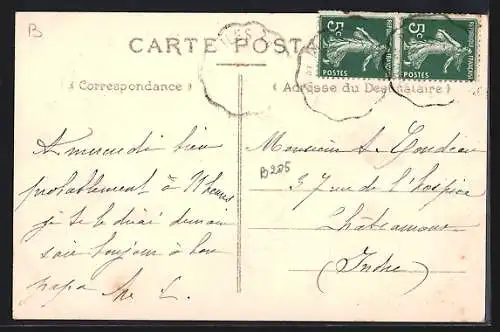 B
CARTE POSTALE
(Correspondance)
(Adresse du Destinataire)
5c
POSTES
REPUBLIQUE FRANÇAISE
5c
POSTES
REPUBLIQUE FRANÇAISE
B205
A mercredi bien
probablement à 11 heures
je te le dirai demain
soir toujours à ton
papa
L.
Monsieur
37 rue de l'hospice
Châteauroux
(Indre)